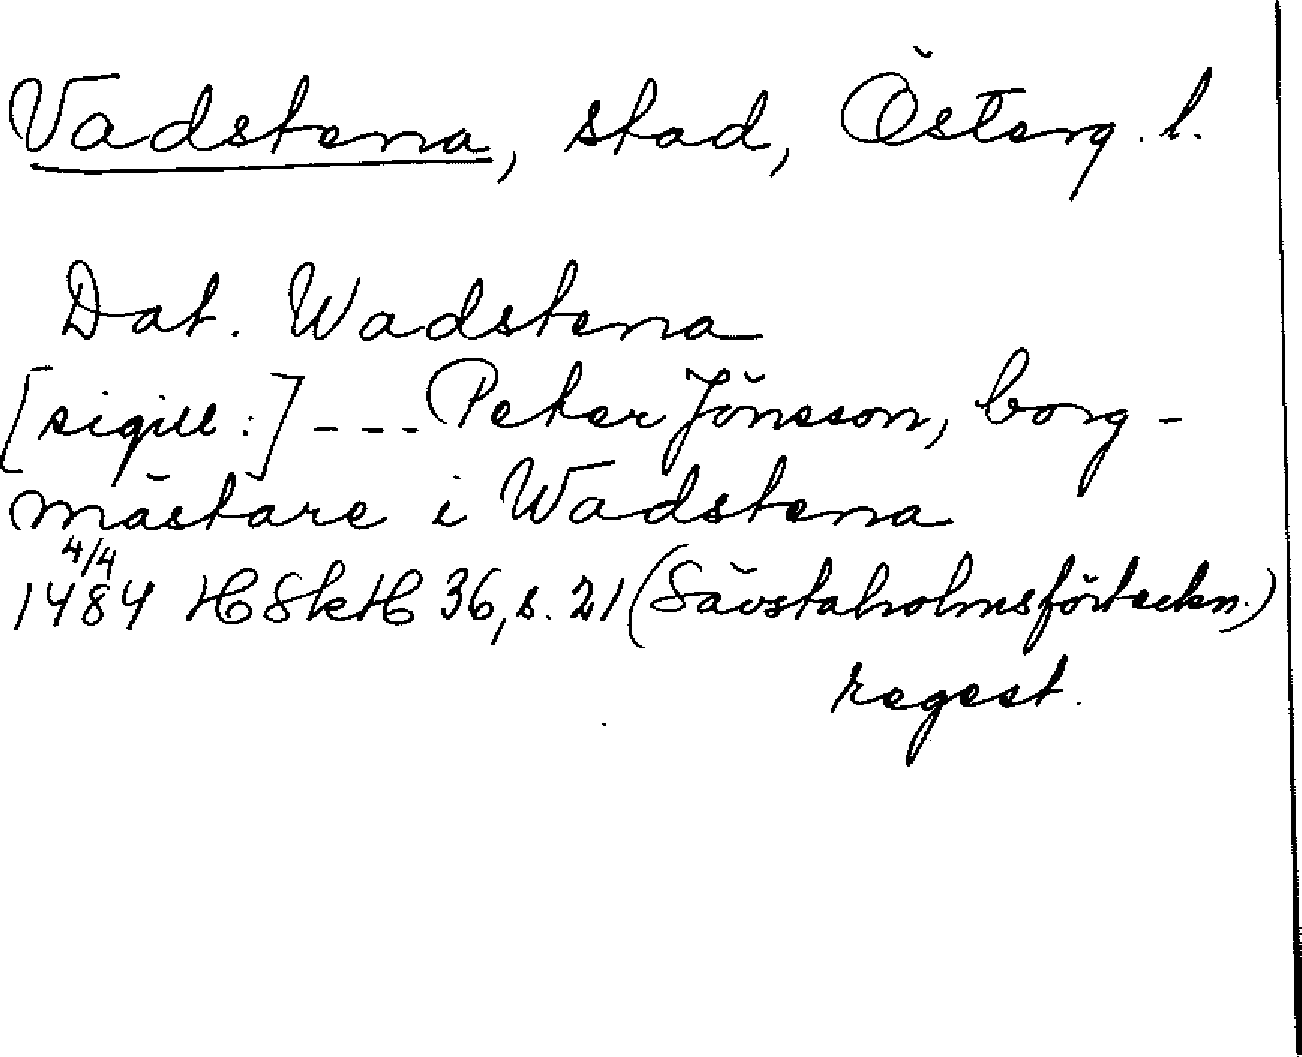 Vadstena, stad, Österg. l.
Dat. Wadstena
[sigill:] --- Peter Jönsson, borg-
mästare i Wadstena
4/4
1484 HSkH 36, s. 21 (Sävstaholmsförteckn.)
regest.